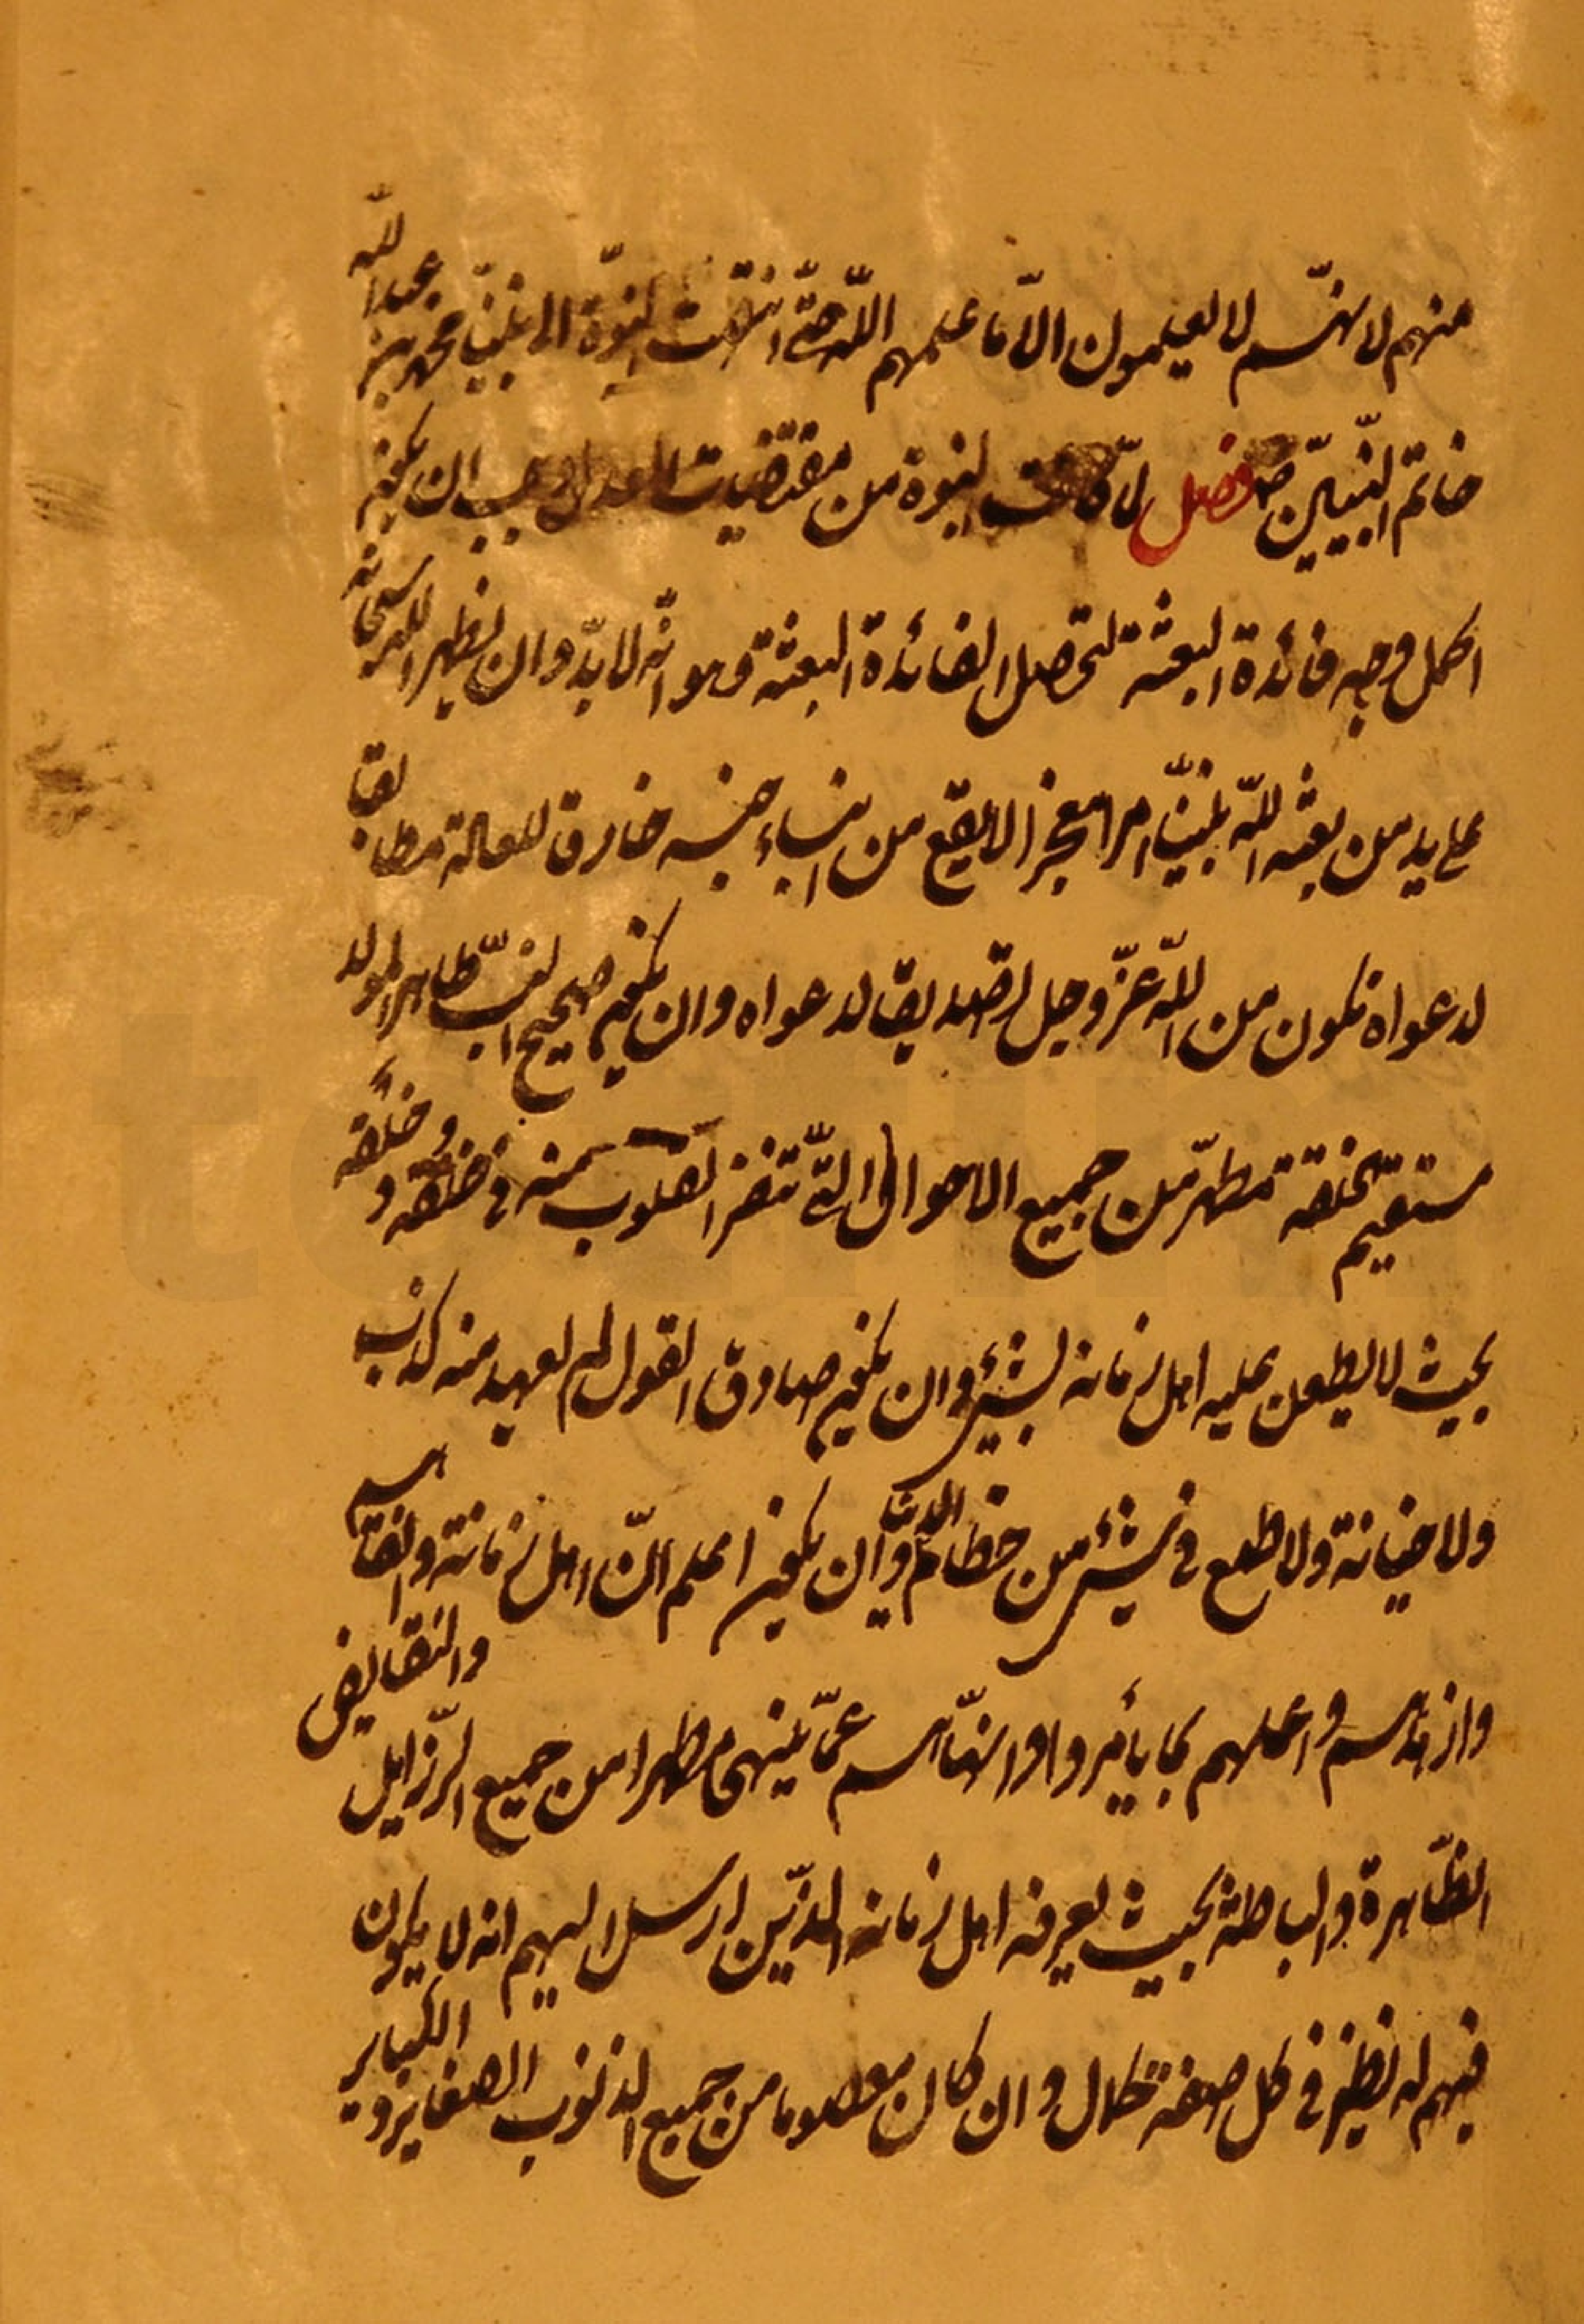 منهم لانهم لا يعلمون الا ما علمهم الله حتى انتهت النبوة الى نبينا محمد بن عبد الله
خاتم النبيين ص فصل لما كانت النبوة من مقتضيات العدل وجب ان يكون
اكمل وجه فائدة البعثة لتحصل الفائدة البعثة وهو انه لا بد وان يظهر الله سبحانه
على يد من بعثه الله نبينا امرا معجزا لا يقع من ابناء جنسه خارق للعادة مطابقا
لدعواه تكون من الله عز وجل تصديقا لدعواه وان يكون صحيح النسب طاهر المولد
مستقيم الخلقة مطهر من جميع الاحوال التي تنفر القلوب منه في خلقه وخلقه
بحيث لا يطعن عليه اهل زمانه بشيء وان يكون صادق القول لم يعهد منه كذب
ولا خيانة ولا طمع في شيء من حطام الدنيا وان يكون اعلم ان اهل زمانه واتقاهم
وازهدهم واعملهم بما يأمر وانهاهم عما ينهى مطهرا من جميع الرذايل والنقايض
الظاهرة والباطنة بحيث يعرفه اهل زمانه الذين ارسل اليهم انه لا يكون
فيهم له نظير في كل صفة كمال وان كان معصوما من جميع الذنوب الصغاير والكباير